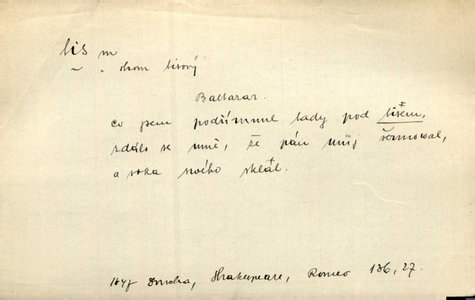 tis m
~ . strom tisový
Baltazar.
co jsem podřímnul tady pod tisem,
zdálo se mně, že pán můj šermoval,
a soka svého sklál.
1847 Doucha, Shakespeare, Romeo 136, 27.